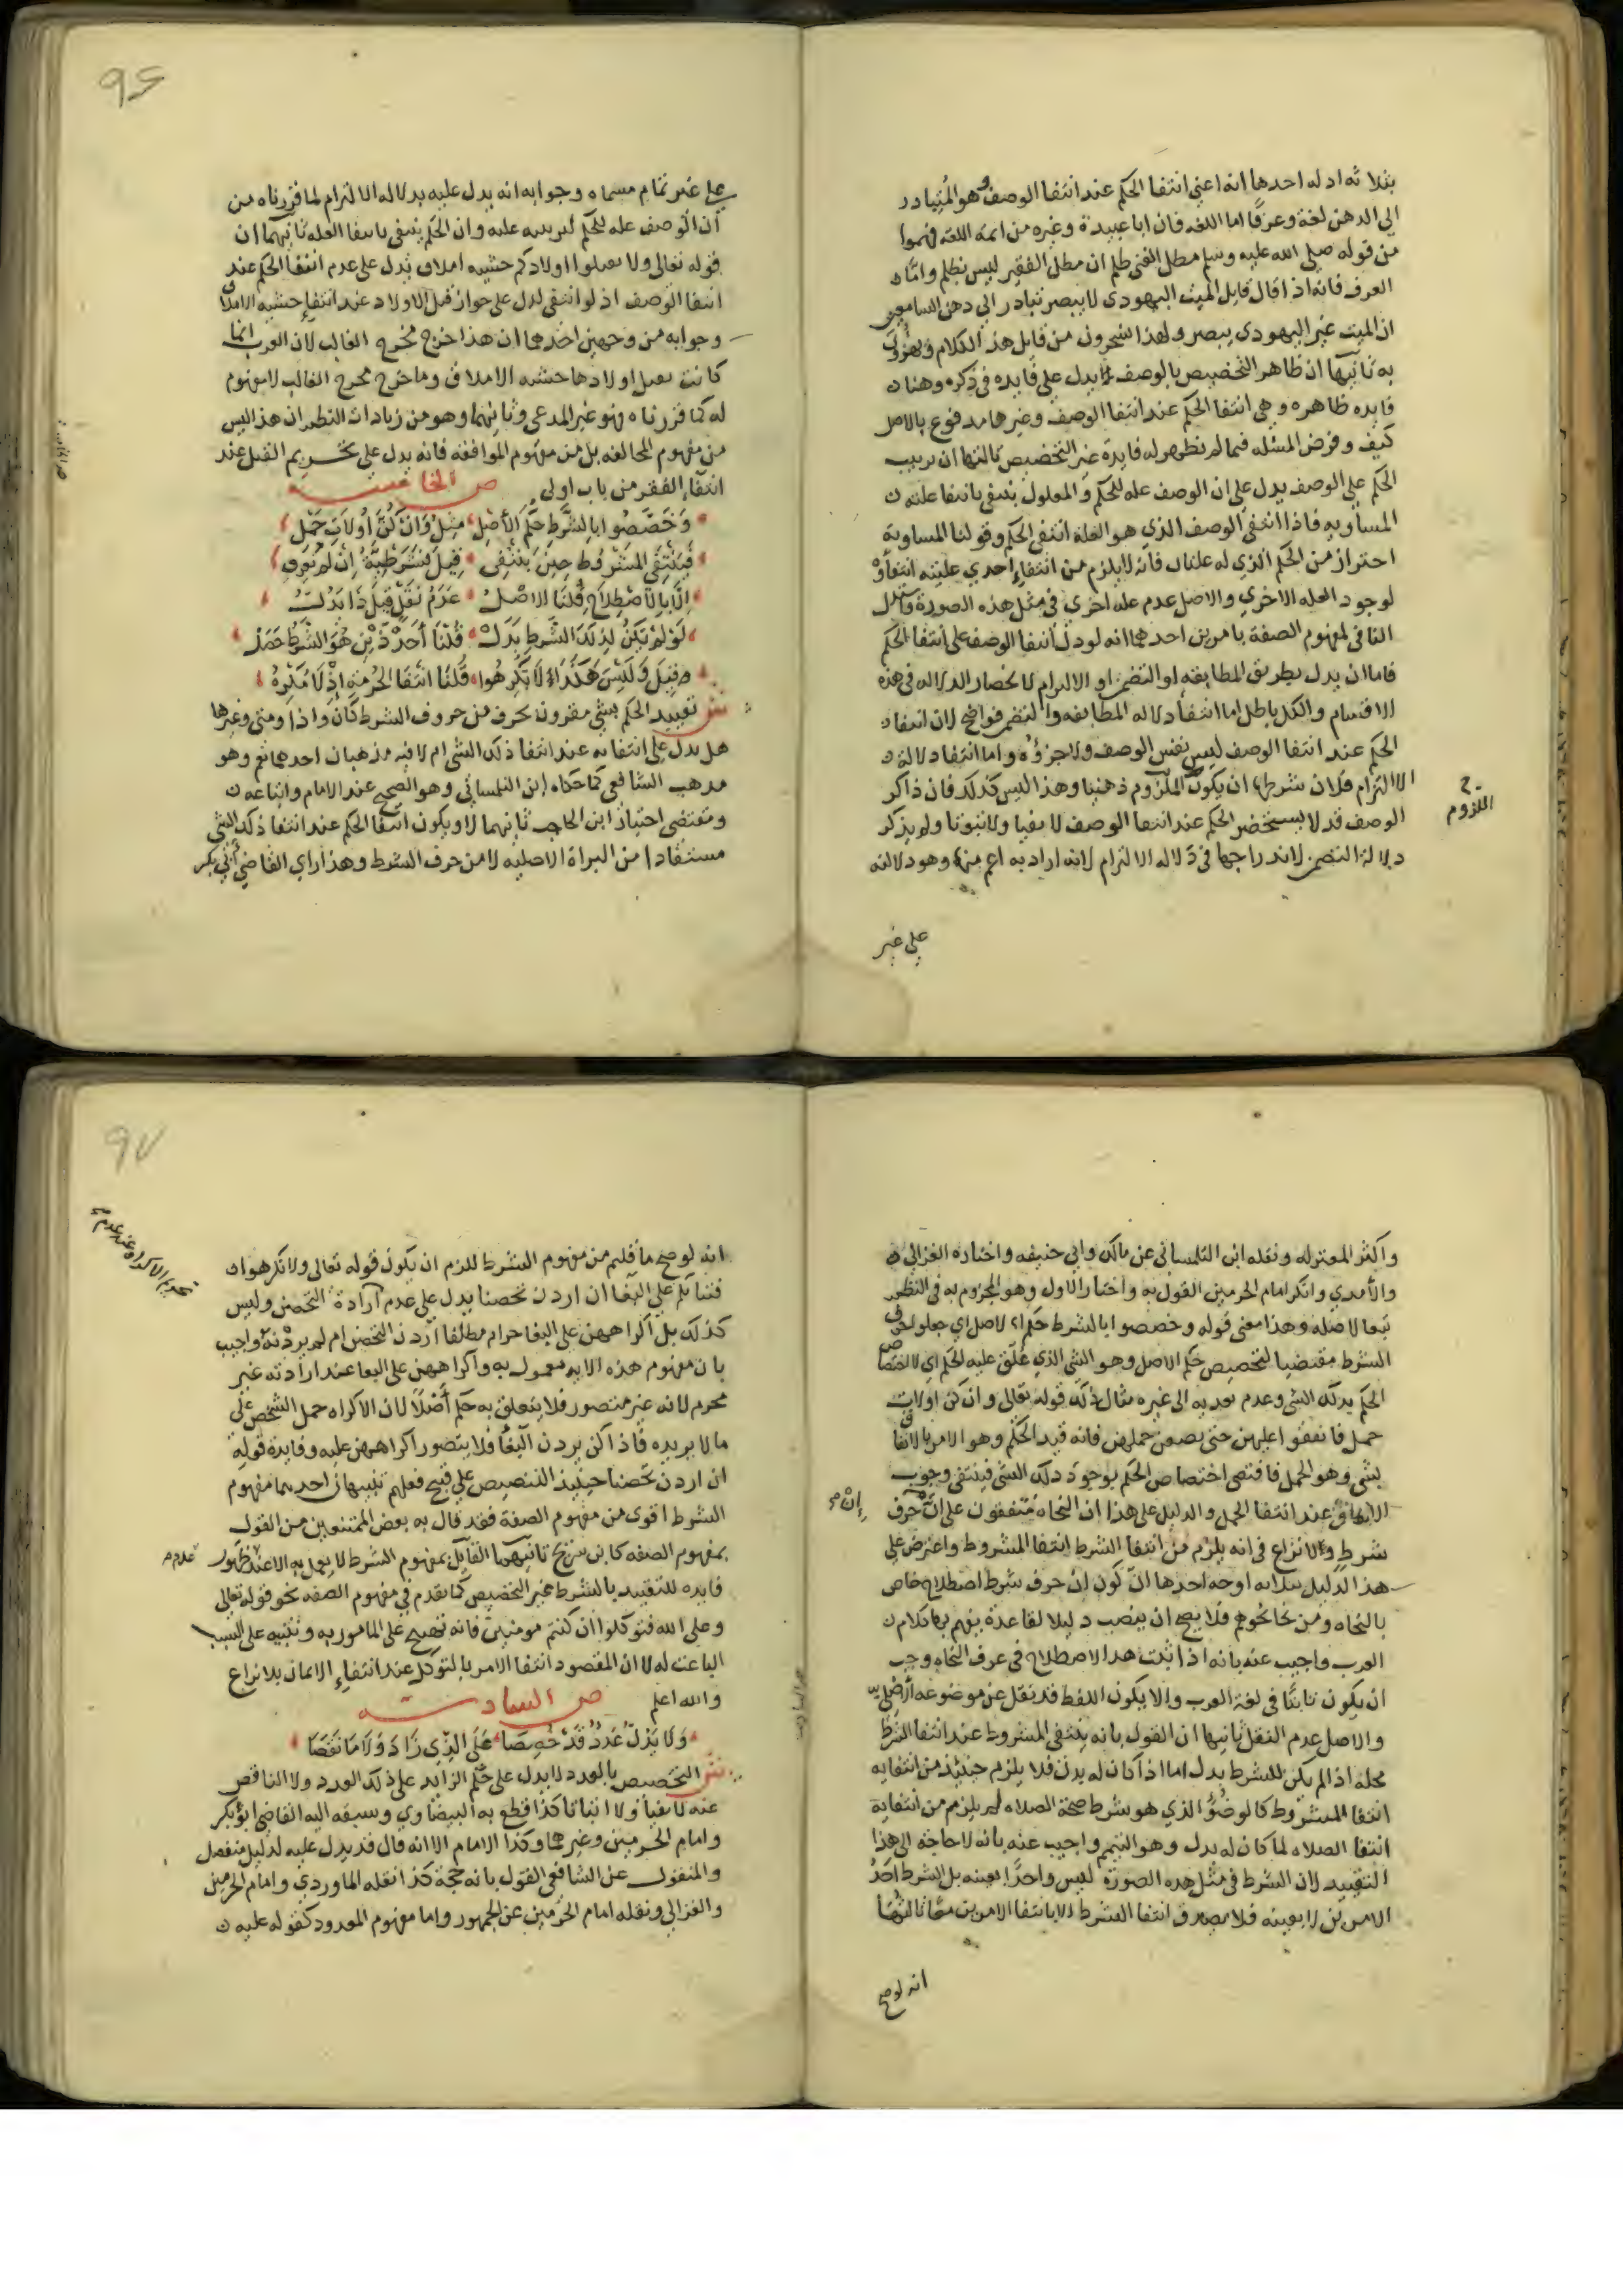 بثلاثه ادله احدها انه اعني انتفا الحكم عند انتفا الوصف هو المتبادر
الي الدهن لغة وعرفا اما اللغه فان ابا عبيدة وغيره من ايمة اللغة فهموا
من قوله صلي الله عليه وسلم مطل الغني ظلم ان مطل الفقير ليس بظلم واما
العرف فانه اذا قال قايل الميت اليهودي لا يبصر تبادر الي دهن السامعين
ان الميت غير اليهودي يبصر ولهذا يسخرون من قايل هذا الكلام
به ثانيها ان ظاهر التخصيص بالوصف يدل علي فايده في ذكره وهنا
فايده ظاهره وهي انتفا الحكم عند انتفا الوصف وغيرها مدفوع بالاصل
كيف وفرض المسئله فيما لم تظهر له فايدة غير التخصيص ثالثها ان ترتيب
الحكم علي الوصف يدل علي ان الوصف عله للحكم والمعلول ينتفي بانتفا علته
المساويه فاذا انتفي الوصف الذي هو العلة انتفي الحكم وقولنا المساوية
احتراز من الحكم الذي له علتان فانه لا يلزم من انتفاء احدي علتيه انتفاؤه
لوجود العله الاخري والاصل عدم عله اخري في مثل هذه الصورة
النافي لمفهوم الصفة بامرين احدهما انه لو دل انتفا الوصف علي انتفا الحكم
فاما ان يدل بطريق المطابقه او التضمن او الالتزام لانحصار الدلاله في هذه
الاقسام والكل باطل اما انتفا دلاله المطابقه والتضمن فواضح لان انتفا
الحكم عند انتفا الوصف ليس نفس الوصف ولا جزؤه واما انتفا دلالة
الالتزام فلان شرطها ان يكون الملزوم ذهنيا وهذا ليس كذلك فان ذاكر
اللزوم
الوصف قد لا يستحضر الحكم عند انتفا الوصف لا نفيا ولا ثبوتا ولم يذكر
دلالة التضمن لاندراجها في دلاله الالتزام لانه اراد به اعم منها وهو دلالته
علي غير
96
علي غير تمام مسماه وجوابه انه يدل عليه بدلاله الالتزام لما قررناه من
ان الوصف عله للحكم لترتيبه عليه وان الحكم ينتفي بانتفا العله ثانيهما ان
قوله تعالي ولا تقتلوا اولادكم خشيه املاق يدل علي عدم انتفا الحكم عند
انتفا الوصف اذ لو انتفي لدل علي جواز قتل الاولاد عند انتفاء خشيه الاملاق
وجوابه من وجهين احدهما ان هذا خرج مخرج الغالب لان العرب انما
كانت تقتل اولادها خشيه الاملاق وما خرج مخرج الغالب لا مفهوم
له كما قررناه فهو غير المدعي وثانيهما وهو من زيادات النظم ان هذا ليس
من مفهوم المخالفه بل من مفهوم الموافقة فانه يدل علي تحريم القتل عند
انتفاء الفقر من باب اولي ص الخامسة
وخصصوا بالشرط حكم الاصل مثل وان كن اولات حمل
فينتفي المشروط حين ينتفي قيل فشرطية ان لم تعرف
الا بالاصطلاح قلنا الاصل عدم نقل قيل ذا يدل
لو لم يكن لذلك الشرط بدل قلنا احد ذين هو الشرط حصل
قيل وليس هكذا لا تكرهوا قلنا انتفا الحرمة اذ لا مكره
ش تقييد الحكم بشي مقرون بحرف من حروف الشرط كان واذا ومتي وغيرها
هل يدل علي انتفايه عند انتفا ذلك الشي ام لا فيه مذهبان احدهما نعم وهو
مذهب الشافعي كما حكاه ابن التلمساني وهو الصحيح عند الامام واتباعه
ومقتضي اختيار ابن الحاجب ثانيهما لا ويكون انتفا الحكم عند انتفا ذلك الشي
مستفادا من البراة الاصليه لا من حرف الشرط وهذا راي القاضي ابي بكر
واكثر المعتزله ونقله ابن التلمساني عن مالك وابي حنيفه واختاره الغزالي
والآمدي وانكر امام الحرمين القول به واختار الاول وهو المجزوم به في النظم
تبعا لاصله وهذا معني قوله وخصصوا بالشرط حكم الاصل اي جعلوا حرف
الشرط مقتضيا لتخصيص حكم الاصل وهو الشي الذي علق عليه الحكم اي لاختصاص
الحكم بذلك الشي وعدم تعديه الي غيره مثال ذلك قوله تعالي وان كن اولات
حمل فانفقوا عليهن حتي يضعن حملهن فانه قيد الحكم وهو الامر بالانفاق
بشي وهو الحمل فاقتضي اختصاص الحكم بوجود ذلك الشي فينتفي وجوب
الانفاق عند انتفا الحمل والدليل علي هذا ان النحاة متفقون علي ان حرف
إن
شرط ولا نزاع في انه يلزم من انتفا الشرط انتفا المشروط واعترض علي
هذا الدليل بثلاثه اوجه احدها ان كون إن حرف شرط اصطلاح خاص
بالنحاه ومن نحا نحوهم فلا يصح ان ينصب دليلا لقاعدة يفهم بها كلام
العرب واجيب عنه بانه اذا ثبت هذا الاصطلاح في عرف النحاه وجب
ان يكون ثابتا في لغة العرب والا يكون اللفظ قد نقل عن موضوعه الاصلي
والاصل عدم النقل ثانيها ان القول بانه ينتفي المشروط عند انتفا الشرط
محله اذا لم يكن للشرط بدل اما اذا كان له بدل فلا يلزم حينئذ من انتفايه
انتفا المشروط كالوضؤ الذي هو شرط صحة الصلاه لم يلزم من انتفاية
انتفا الصلاه لما كان له بدل وهو التيمم واجيب عنه بانه لا حاجة الي هذا
التقييد لان الشرط في مثل هذه الصورة ليس واحدا بعينه بل الشرط احد
الامرين لا بعينه فلا يصدق انتفا الشرط الا بانتفا الامرين معا ثالثها
انه لو صح
97
انه لو صح ما قلتم من مفهوم الشرط للزم ان يكون قوله تعالي ولا تكرهوا
فتياتكم علي البغا ان اردن تحصنا يدل علي عدم ارادة التحصن وليس
تحريم الاكراه عند عدم
كذلك بل اكراههن علي البغا حرام مطلقا اردن التحصن ام لم يردنه واجيب
بان مفهوم هذه الايه معمول به واكراههن علي البغا عند ارادته غير
محرم لانه غير متصور فلا يتعلق به حكم أصلا لان الاكراه حمل الشخص علي
ما لا يريده فاذا كن يردن البغا فلا يتصور اكراههن عليه وفايدة قوله
ان اردن تحصنا حينئذ التنصيص علي قبح فعلهم تنبيهان احدهما مفهوم
الشرط اقوي من مفهوم الصفة فقد قال به بعض الممتنعين من القول
بمفهوم الصفه كابن سريج ثانيهما القايل بمفهوم الشرط لا يعمل به الا عند ظهور
عدم
فايده للتقييد بالشرط غير التخصيص كما تقدم في مفهوم الصفه نحو قوله تعالي
وعلي الله فتوكلوا ان كنتم مومنين فانه تهييج علي المامور به وتنبيه علي السبب
الباعث له لا ان المقصود انتفا الامر بالتوكل عند انتفاء الايمان بلا نزاع
والله اعلم ص السادسة
ولا يدل عدد قد خصصا علي الذي زاد ولا ما نقصا
ش التخصيص بالعدد لا يدل علي حكم الزايد علي ذلك العدد ولا الناقص
عنه لا نفيا ولا اثباتا كذا قطع به البيضاوي وسبقه اليه القاضي ابو بكر
وامام الحرمين وغيرهما وكذا الامام الا انه قال قد يدل عليه لدليل منفصل
والمنقول عن الشافعي القول بانه حجة كذا نقله الماوردي وامام الحرمين
والغزالي ونقله امام الحرمين عن الجمهور واما مفهوم المعدود كقوله عليه